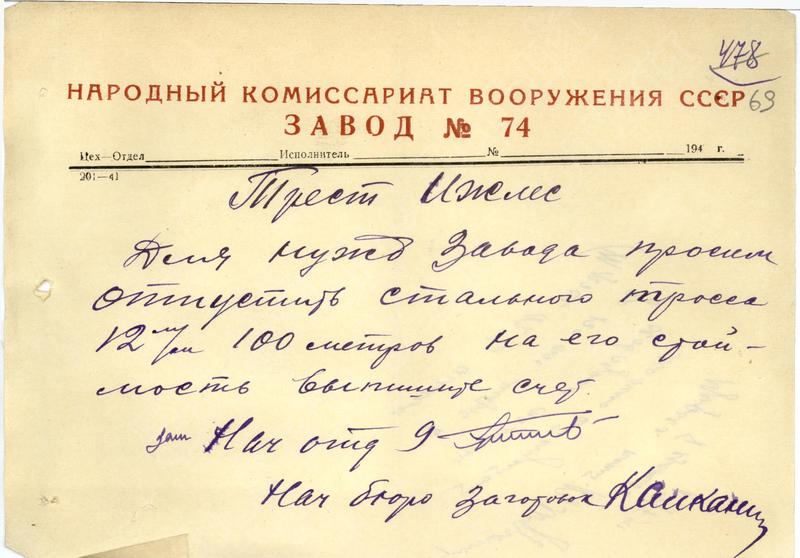 478
69
НАРОДНЫЙ КОМИССАРИАТ ВООРУЖЕНИЯ СССР
ЗАВОД № 74
Цех—Отдел Исполнитель № 194 г.
201—41
Трест Ижлес
Для нужд Завода просим
отпустить стального тросса
12 м/м 100 метров на его стои-
мость выпишите счет.
зам Нач отд 9
Нач бюро заготовок